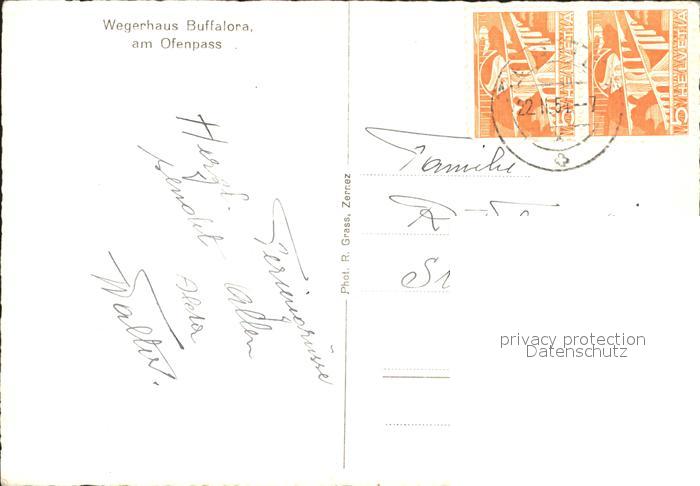 Wegerhaus Buffalora,
am Ofenpass
HELVETIA 5
HELVETIA 5
22
Herzl. Feriengrüsse
sendet Allen
Walter.
Phot. R. Grass, Zernez
Familie
privacy protection
Datenschutz